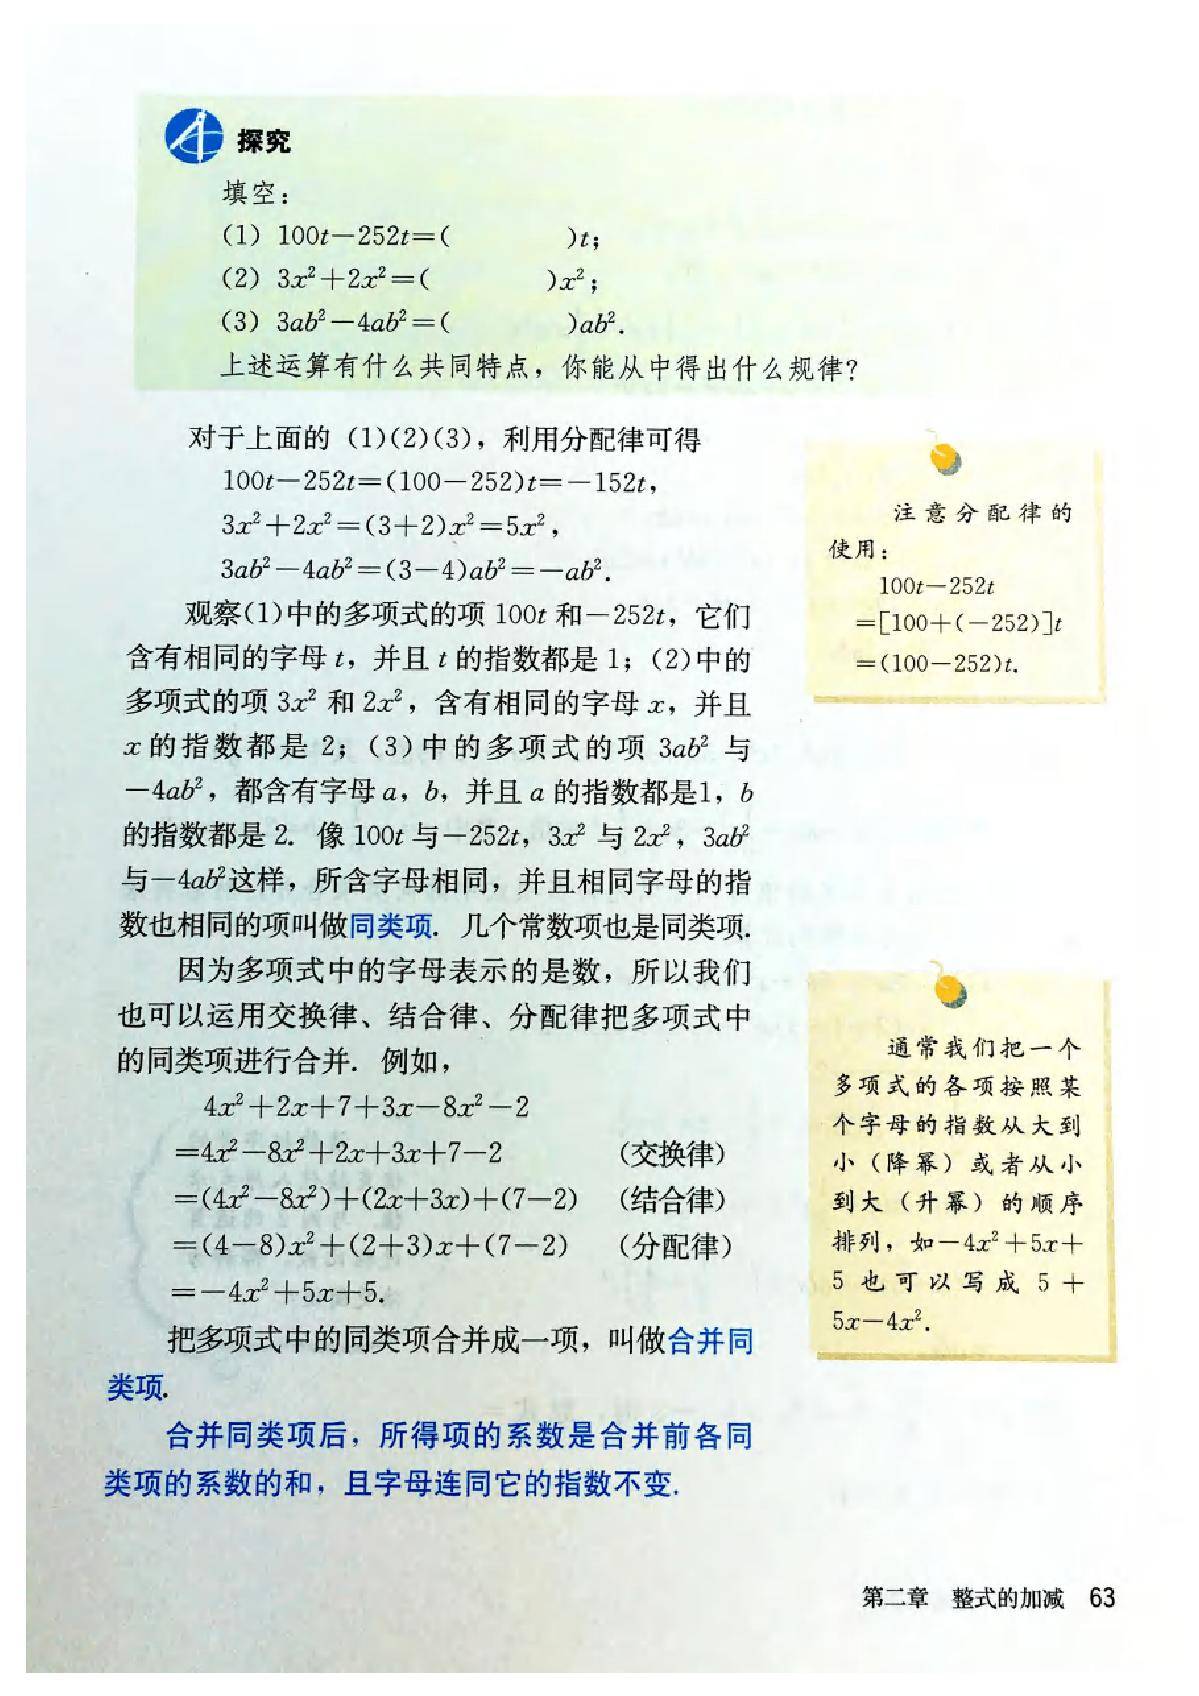 探究
填空：
(1) 100t－252t＝(　　　)t；
(2) 3x²＋2x²＝(　　　)x²；
(3) 3ab²－4ab²＝(　　　)ab².
上述运算有什么共同特点，你能从中得出什么规律？
对于上面的 (1)(2)(3)，利用分配律可得
100t－252t＝(100－252)t＝－152t，
3x²＋2x²＝(3＋2)x²＝5x²，
3ab²－4ab²＝(3－4)ab²＝－ab².
观察(1)中的多项式的项 100t 和－252t，它们
含有相同的字母 t，并且 t 的指数都是 1；(2)中的
多项式的项 3x² 和 2x²，含有相同的字母 x，并且
x 的指数都是 2；(3)中的多项式的项 3ab² 与
－4ab²，都含有字母 a，b，并且 a 的指数都是1，b
的指数都是 2. 像 100t 与－252t，3x² 与 2x²，3ab²
与－4ab²这样，所含字母相同，并且相同字母的指
数也相同的项叫做同类项. 几个常数项也是同类项.
因为多项式中的字母表示的是数，所以我们
也可以运用交换律、结合律、分配律把多项式中
的同类项进行合并. 例如，
4x²＋2x＋7＋3x－8x²－2
＝4x²－8x²＋2x＋3x＋7－2　(交换律)
＝(4x²－8x²)＋(2x＋3x)＋(7－2)　(结合律)
＝(4－8)x²＋(2＋3)x＋(7－2)　(分配律)
＝－4x²＋5x＋5.
把多项式中的同类项合并成一项，叫做合并同
类项.
合并同类项后，所得项的系数是合并前各同
类项的系数的和，且字母连同它的指数不变.
注意分配律的
使用：
100t－252t
＝[100＋(－252)]t
＝(100－252)t.
通常我们把一个
多项式的各项按照某
个字母的指数从大到
小（降幂）或者从小
到大（升幂）的顺序
排列，如－4x²＋5x＋
5 也可以写成 5＋
5x－4x².
第二章　整式的加减　63